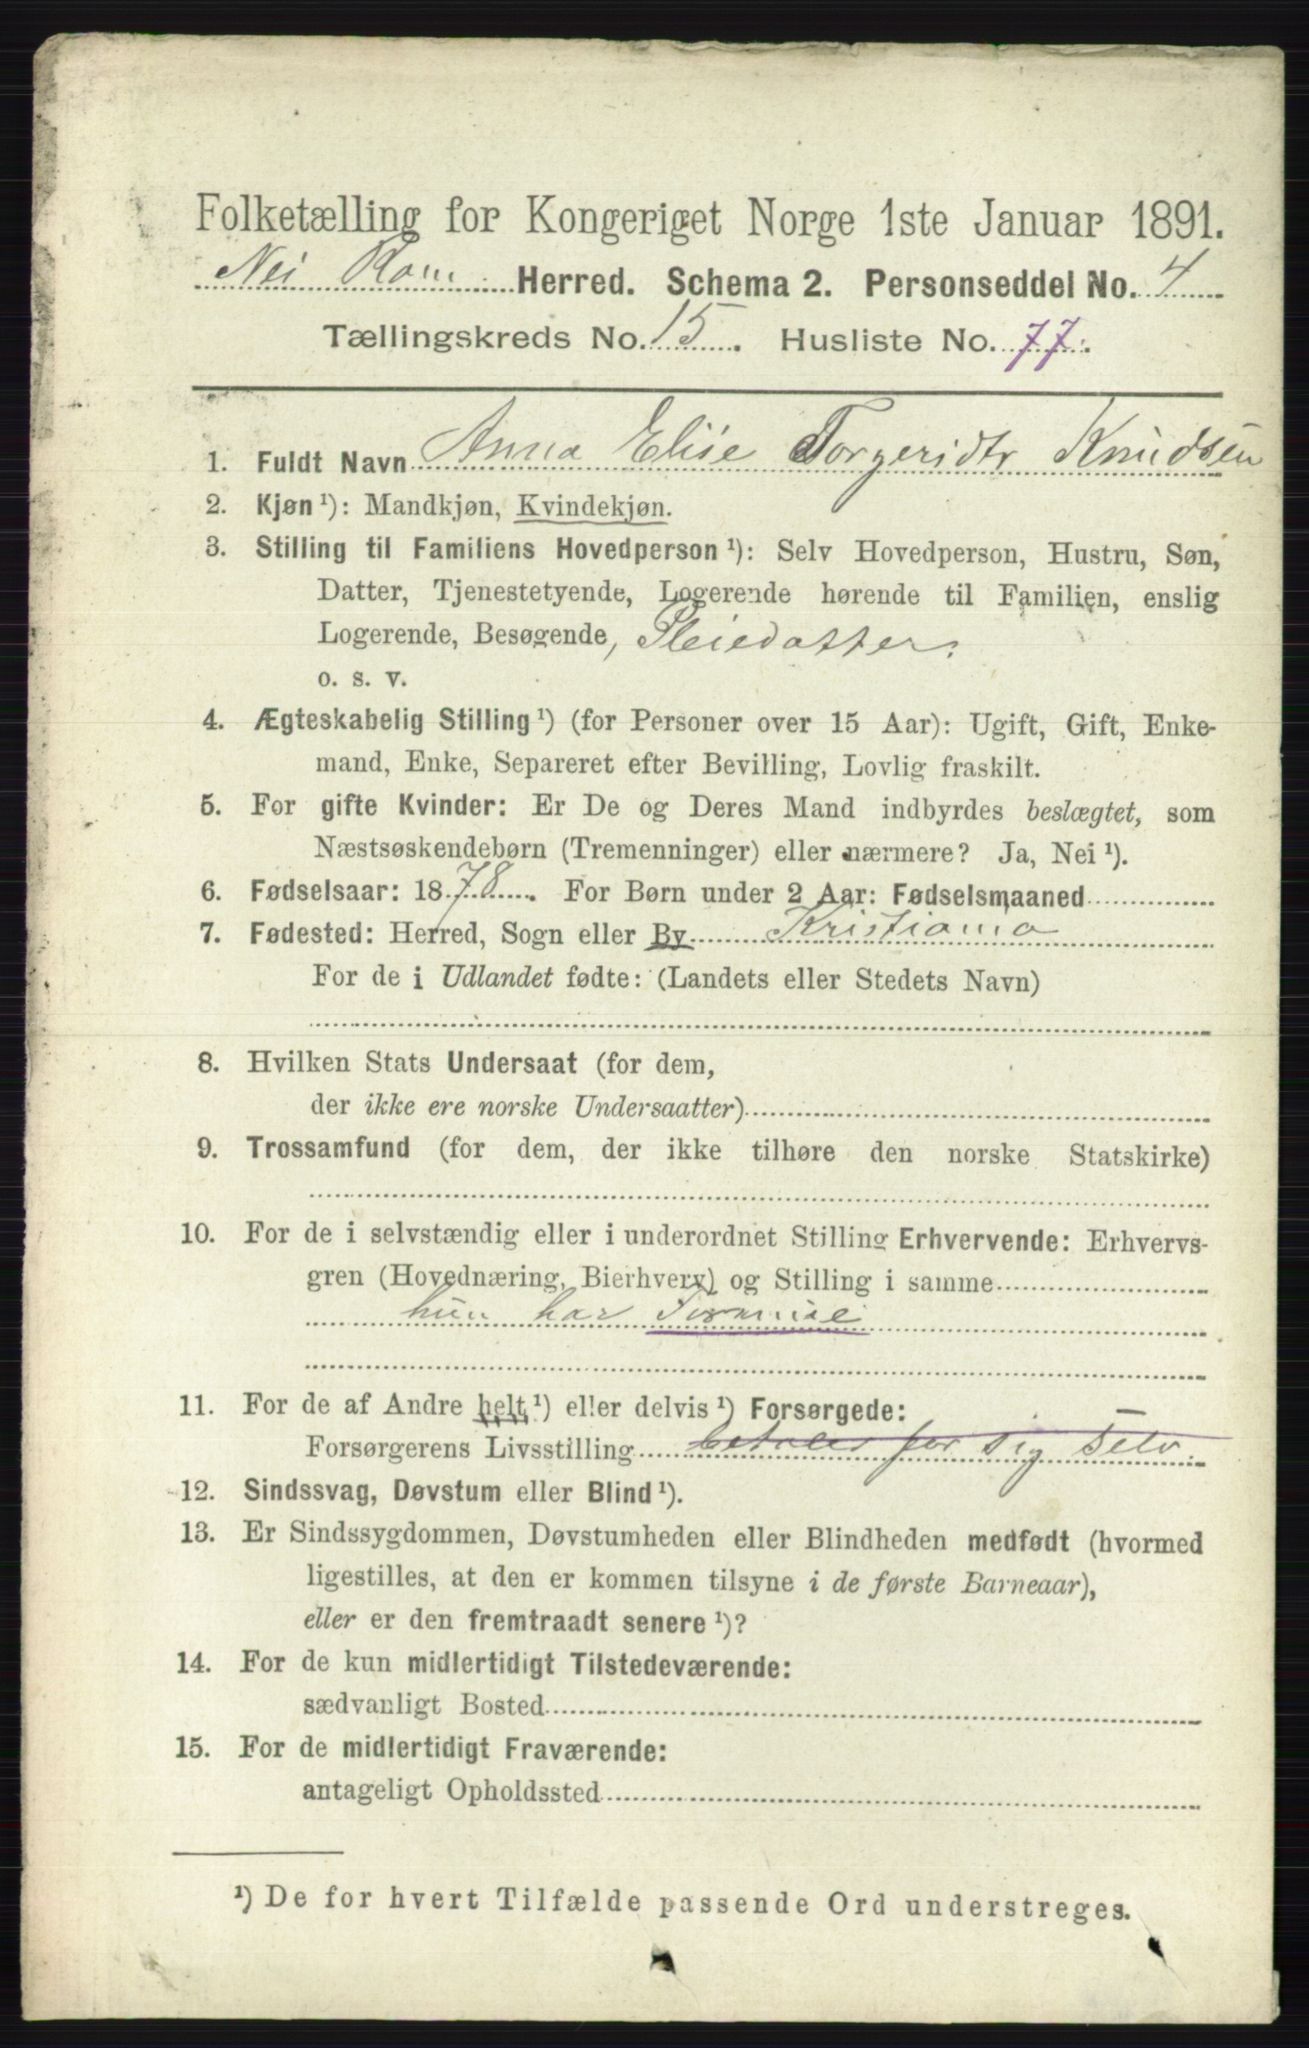 Folketælling for Kongeriget Norge 1ste Januar 1891.
Herred. Schema 2. Personseddel No. 4
Tællingskreds No. 15. Husliste No. 77.
1. Fuldt Navn Anna Elise Torgeridtr Knudsen
2. Kjøn ¹): Mandkjøn, Kvindekjøn.
3. Stilling til Familiens Hovedperson ¹): Selv Hovedperson, Hustru, Søn,
Datter, Tjenestetyende, Logerende hørende til Familien, enslig
Logerende, Besøgende, Pleiedatter.
o. s. v.
4. Ægteskabelig Stilling ¹) (for Personer over 15 Aar): Ugift, Gift, Enke-
mand, Enke, Separeret efter Bevilling, Lovlig fraskilt.
5. For gifte Kvinder: Er De og Deres Mand indbyrdes beslægtet, som
Næstsøskendebørn (Tremenninger) eller nærmere? Ja, Nei ¹).
6. Fødselsaar: 1878. For Børn under 2 Aar: Fødselsmaaned
7. Fødested: Herred, Sogn eller By Kristiania
For de i Udlandet fødte: (Landets eller Stedets Navn)
8. Hvilken Stats Undersaat (for dem,
der ikke ere norske Undersaatter)
9. Trossamfund (for dem, der ikke tilhøre den norske Statskirke)
10. For de i selvstændig eller i underordnet Stilling Erhvervende: Erhvervs-
gren (Hovednæring, Bierhverv) og Stilling i samme
hun har Formue
11. For de af Andre helt ¹) eller delvis ¹) Forsørgede:
Forsørgerens Livsstilling betaler for sig selv.
12. Sindssvag, Døvstum eller Blind ¹).
13. Er Sindssygdommen, Døvstumheden eller Blindheden medfødt (hvormed
ligestilles, at den er kommen tilsyne i de første Barneaar),
eller er den fremtraadt senere ¹)?
14. For de kun midlertidigt Tilstedeværende:
sædvanligt Bosted
15. For de midlertidigt Fraværende:
antageligt Opholdssted
¹) De for hvert Tilfælde passende Ord understreges.